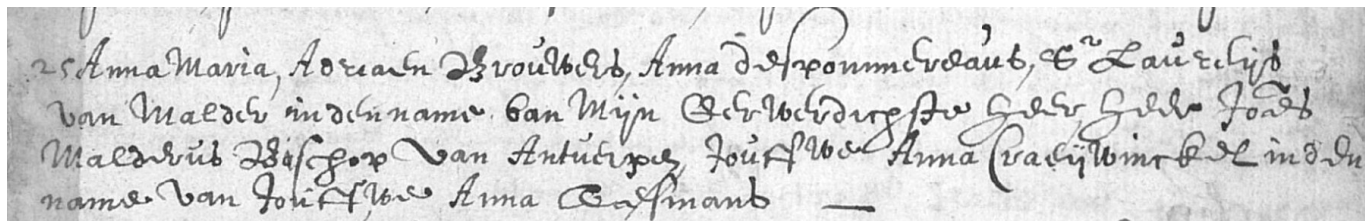 25 Anna Maria, Adriaen Brouwers, Anna despommereaus, Sr Laureijs
van Malder in den name van Mijn Eerwerdichste Heer, Heer Joēs
Malderus Bisschop van Antwerpen Jouffwe Anna Craeijwinckel in den
name van Jouffwe Anna Goesmans —